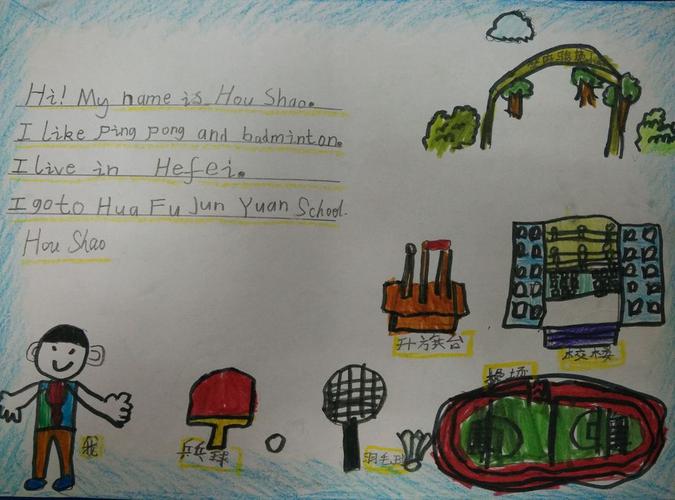 Hi! My name is Hou Shao.
I like Ping Pong and badminton.
I live in Hefei.
I go to Hua Fu Jun Yuan School.
Hou Shao
升旗台
校楼
操场
我
乒乓球
羽毛球